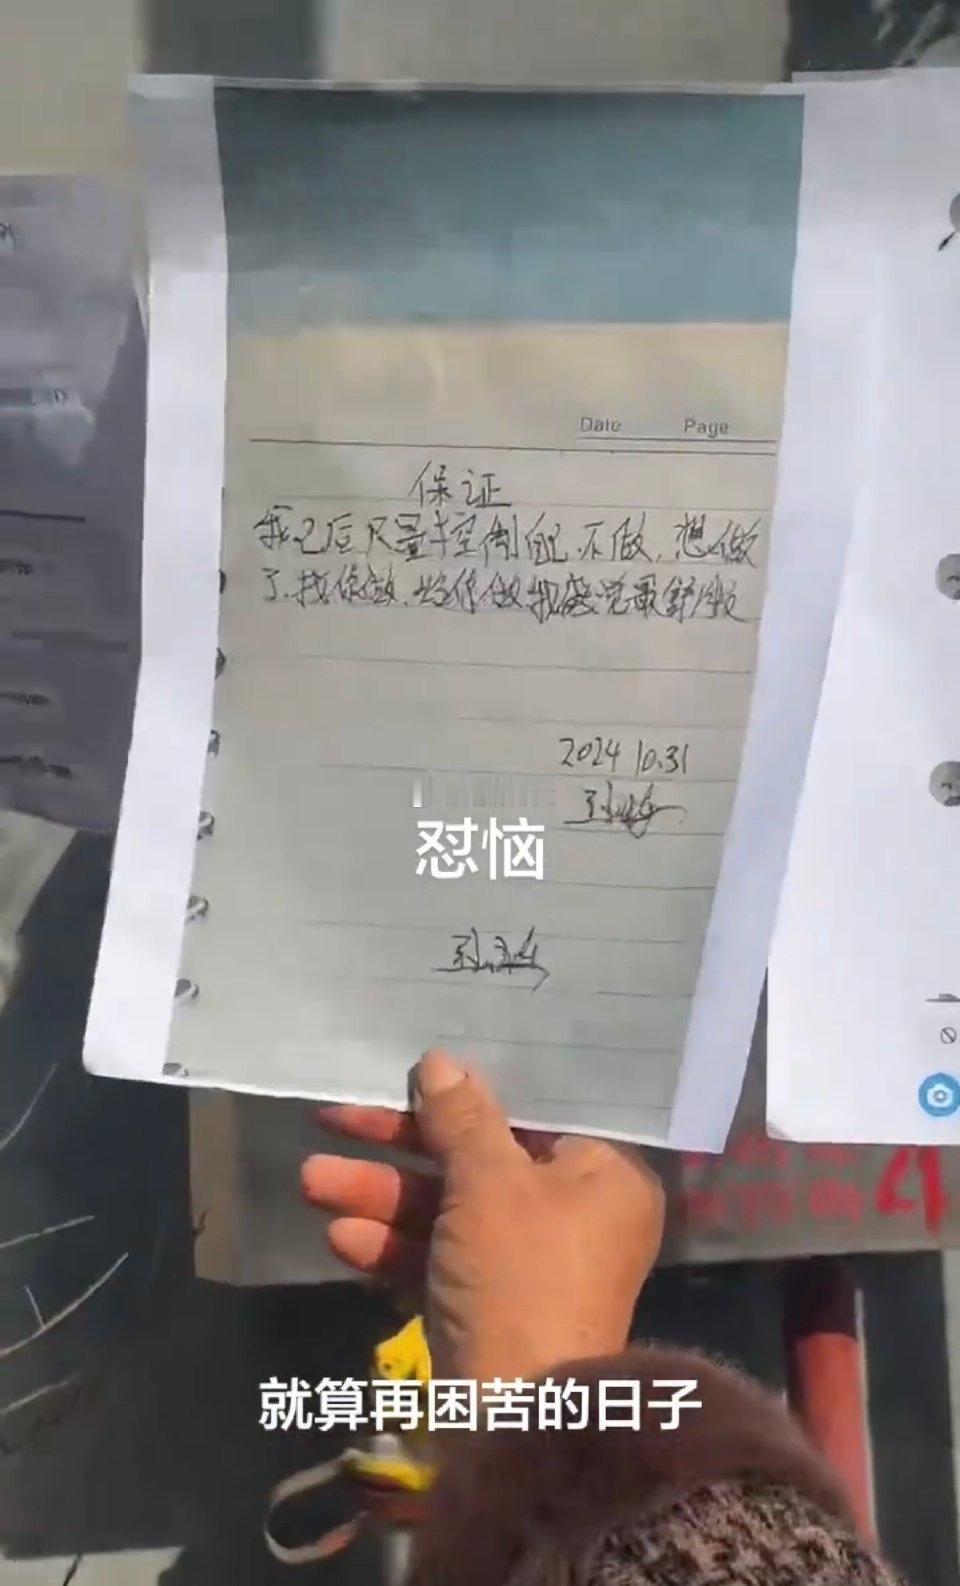 Date Page
保证
我已后尽量控制自己不做,想做
了.找你做.跟你做我感觉最舒服
2024 10.31
怼恼
就算再困苦的日子